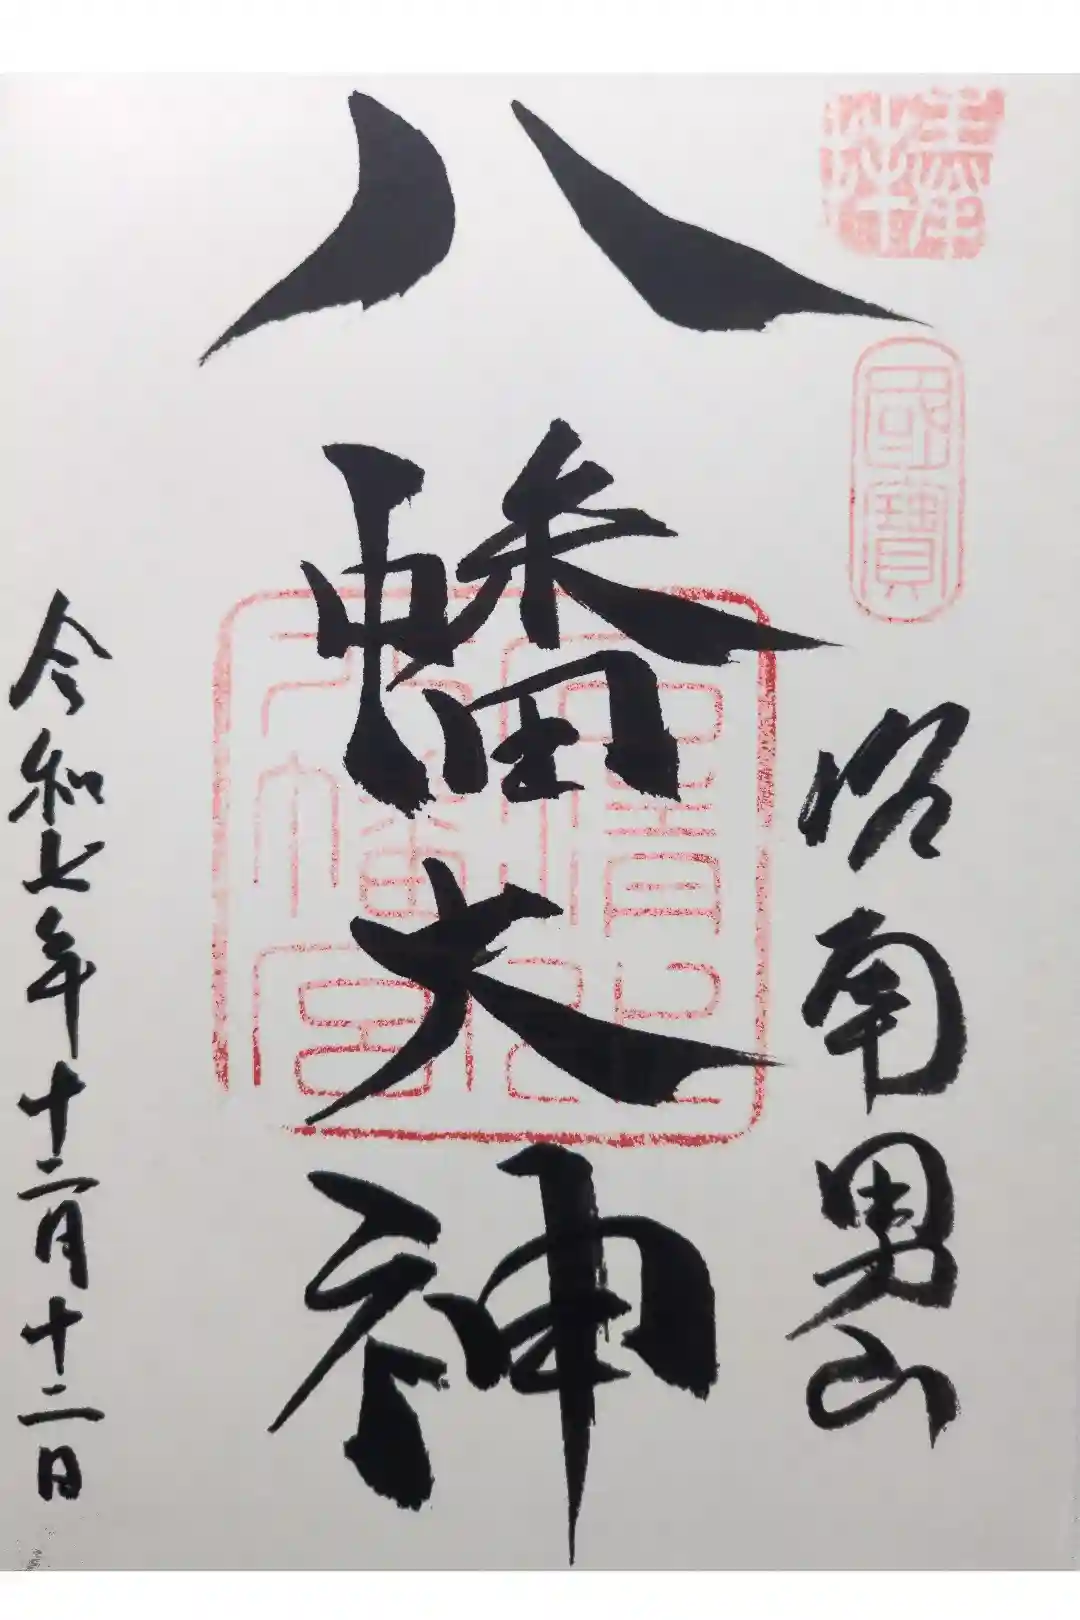 奉拝
國寶
洛南男山
八幡大神
石清水
八幡宮
令和七年十二月十二日